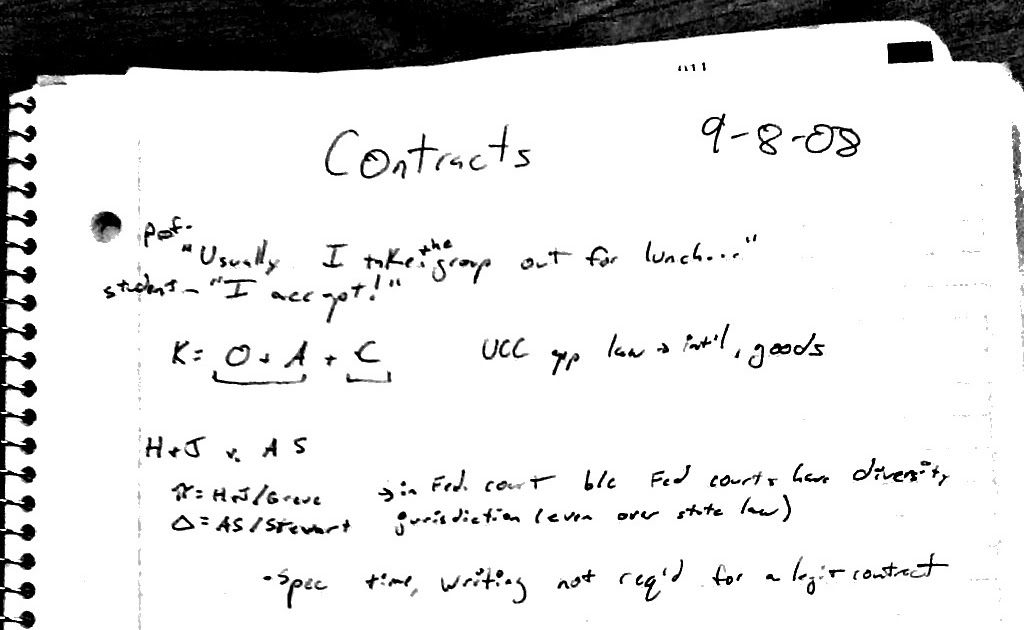 Contracts
9-8-08
Prof-
"Usually I take the group out for lunch..."
student - "I accept!"
K = O + A + C
UCC app law → int'l, goods
H+J v. AS
π = H+J/Greve → in Fed. court b/c Fed courts have diversity
Δ = AS/Stewart jurisdiction (even over state law)
- Spec time, writing not req'd for a legit contract